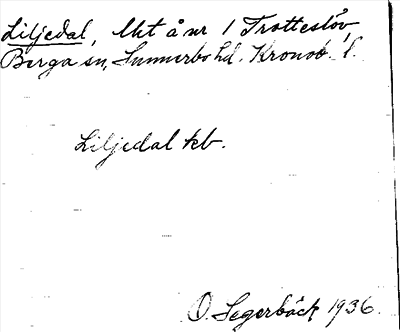 Liljedal, lht å nr 1 Trotteslöv
Berga sn, Sunnerbo hd. Kronob. l.
Liljedal kb.
O. Segerbäck 1936.